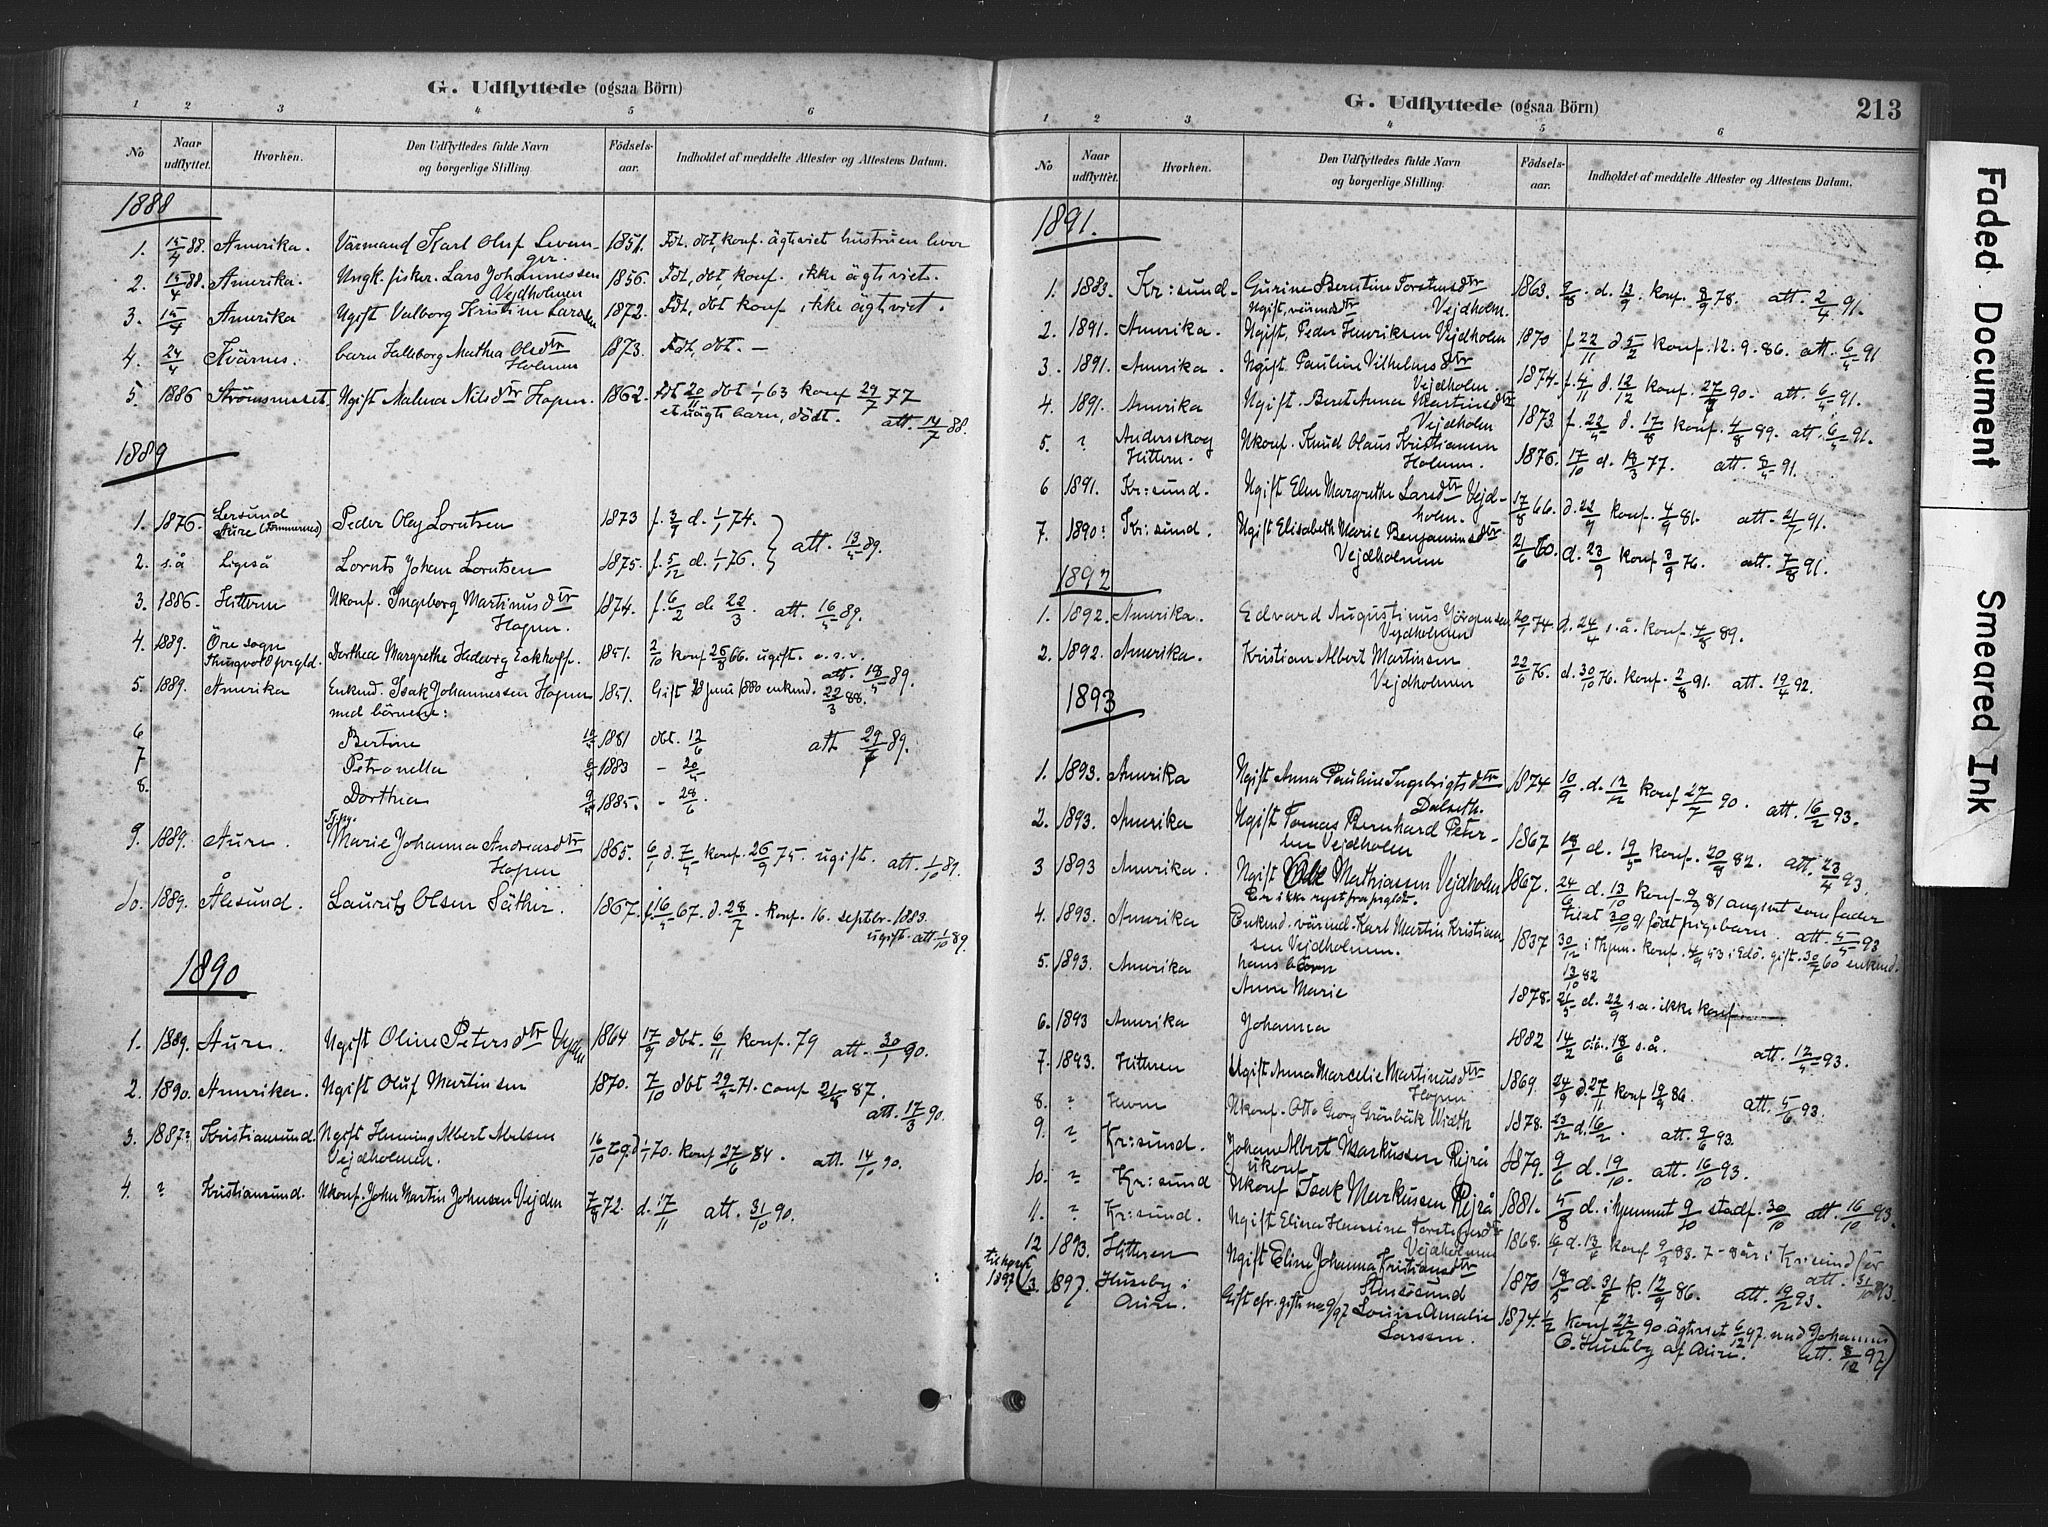 G. Udflyttede (ogsaa Börn)
1 2 3 4 5 6
No Naar udflyttet. Hvorhen. Den Udflyttedes fulde Navn og borgerlige Stilling. Födsels-aar. Indholdet af meddelte Attester og Attestens Datum.
1888
1. 15/4 88. Amerika. Värmand Karl Oluf 1851. Fdt, dbt, konf. ägteviet hustruen lever
2. 15/4 88. Amerika. Ungk. fisker. Lars Johannessen 1856. Fdt, dbt, konf. ikke ägteviet.
Vejdholmen
3. 15/4 Amerika Ugift Valborg Kristine Larsen 1872. Fdt, dbt konf ikke ägteviet.
4. 24/4 Kvärnes. barn Halleborg Mathea Olsdtr 1873. Fdt, dbt. —
Holmen
5. 1886 Strömsneset, Ugift Malena Nilsdtr Hopen. 1862. Fdt 20/11 dbt 1/1 63 konf 29/7 77
et uägte barn, dödt. att. 14/7 88.
1889
1. 1876. Lersund Aure (Tömmernes) Peder Olaj Lorntsen 1873 f. 3/7 d. 1/1 74.
att. 13/5 89.
2. s.å ligeså Lornts Johan Lorntsen 1875. f. 5/12 d. 1/1 76.
3. 1886. Hittern Ukonf. Ingeborg Martinusdtr 1874. f. 6/2 d. 22/3. att. 16/5 89.
Hopen.
4. 1889. Öre sogn Thingvold prgld. Dorthea Margrethe Hedevig Eckhoff. 1851. 2/10 konf 26/8 66. ugift. o.s.v.
att. 18/5 89.
5. 1889. Amerika Enkmd. Isak Johannessen Hopen 1851. Gift 28 juni 1880 enkmd. 22/3 88.
med börnene:
6 Bertine 1881 dbt. 12/6 att 29/7 89.
7 Petronella 1883 - 20/5
8. Dorthea 1885. - 28/6.
9. 1889. Aure. Marie Johanna Andreasdtr 1865. 6/1 d. 7/5 konf. 26/9 75. ugift. att. 1/10 89.
Hopen
10. 1889. Ålesund. Lauritz Olsen Säther. 1867. f. 16/5 67. d. 28/7. konf. 16. septbr. 1883.
ugift. att. 1/10 89.
1890
1. 1889. Aure. Ugift Oline Petersdtr 1864 17/9 dbt. 6/11 konf. 79 att. 30/1 90.
2. 1890. Amerika. Ugift Oluf Martinsen 1870. 7/10 dbt 29/5 71. conf 21/8 87.
att. 17/3 90.
3. 1887? Kristiansund. Ugift Henning Albert Abelsen 16/10 69. d 1/1 70. konf 27/6 84. att. 14/10 90.
Vejdholmen.
4. ? Kristiansund. Ukonf. John Martin Johnsen 7/8 72. d. 17/11 att. 31/10 90.
G. Udflyttede (ogsaa Börn) 213
1 2 3 4 5 6
No Naar udflyttet. Hvorhen. Den Udflyttedes fulde Navn og borgerlige Stilling. Födsels-aar. Indholdet af meddelte Attester og Attestens Datum.
1891.
1. 1883. Kr:sund. Gurine Berntine Torstensdtr 1863. 9/8. d. 13/9. konf. 8/9 78. att. 2/4 91.
Vejdholm.
2. 1891. Amerika. Ugift. Peder Henriksen Vejdholm 1870 f. 22/11 d. 5/2 konf. 12. 9. 86. att. 6/4 91
3. 1891. Amerika. Ugift. Pauline Vilhelmsdtr 1874. f. 4/11 d. 12/12 konf. 27/7 90. att. 6/4 91.
Vejdholm.
4. 1891. Amerika Ugift. Beret Anna Martinsdtr 1873. f. 22/5 d. 17/8 konf. 4/8 89. att. 6/4 91.
Vejdholm
5. ? Anderskog Hittern. Ukonf. Knud Olaus Kristiansen 1876. 17/10 d. 18/3 77. att. 8/5 91.
Holmen.
6 1891. Kr:sund. Ugift Elen Margrethe Larsdtr Vejdholm. 17/8 66. d. 22/9 konf. 4/9 81. att. 21/7 91.
7. 1890: Kr:sund. Ugift Elisabeth Marie Benjaminsdtr 21/6 60. d. 23/9 konf 3/9 76. att. 7/8 91.
Vejdholmen
1892
1. 1892. Amerika. Edvard Augustinus Jörgensen 20/1 74 d. 24/4 s.å. konf. 4/8 89.
Vejdholmen
2. 1892. Amerika. Kristian Albert Martinsen 22/6 76. d. 30/10 76. konf. 2/8 91. att. 19/4 92.
Vejdholmen
1893
1. 1893. Amerika Ugift Anna Pauline Ingebrigtsdtr 1874 10/9. d. 12/12 konf 27/7 90. att. 16/2 93.
Dalseth.
2. 1893. Amerika Ugift Tomas Bernhard Petersen Vejdholm 1867 18/1 d. 19/5 konf. 20/8 82. att. 23/4 93.
3 1893 Amerika. Ugift Ole Mathiassen Vejdholm 1867. 24/6 d. 13/10 konf. 9/9 81 angivet som fader
Er ikke rejst fra prgldt. til et 30/10 91 födt frigebarn. att. 5/5 93
4. 1893. Amerika Enkmd. värmd. Karl Martin Kristiansen Vejdholmen. 1837 30/12 i hjem. konf. 4/9 53 i Edö. gift. 30/7 60 enkmd.
13/10 82
5. 1893. Amerika hans börn
Anne Marie 1878. 21/5 d. 22/9 s.a. ikke konf.
6. 1893 Amerika Johanna 1882 14/2 d. 18/6 s.å. att. 12/5 93.
7. 1893. Hittern Ugift Anna Marcelie Martinusdtr 1869. 24/9 d. 27/11 konf 19/9 86. att. 5/6 93.
Hopen
8. ? Ukonf. Otto Georg Grönbäk Wideth 1878. 23/12 d. 16/2. att. 9/6 93.
9. ? Kr:sund. Johan Albert Markussen Rejrå 1879. 9/6 d. 19/10. att. 16/10 93.
ukonf
10. ? Kr:sund Ukonf Isak Markussen Rejrå 1881. 5/8 d. i hjemmet 9/10 stadf. 30/10 att. 16/10 93.
11. ? Kr:sund. Ugift Elina Hansine Torstensdtr 1868. 16/1 d. 13/4 konf 9/9 83. 7-8 år i Kr:sund för
Vejdholmen att. 31/10 93.
12 1893. Hittern Ugift Eline Johanna Kristiansdtr 1870 18/5 d. 31/7 k. 12/9 86. att. 19/12 93.
1897 (13. 1897. Huseby i Aure. Gift cfr. gifte no 9/97 Louise Amalie Larssen. 1874. 1/2 konf 27/7 90. ägteviet 6/12 97. med Johannes
O. Huseby af Aure. att. 8/12 97)
Faded Document
Smeared Ink